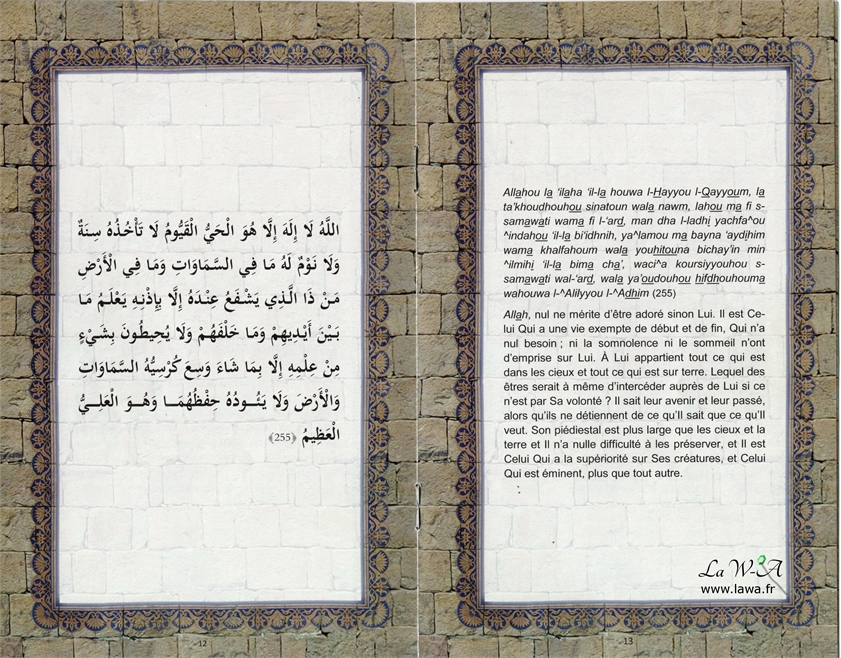 اللَّهُ لَا إِلَهَ إِلَّا هُوَ الْحَيُّ الْقَيُّومُ لَا تَأْخُذُهُ سِنَةٌ
وَلَا نَوْمٌ لَهُ مَا فِي السَّمَاوَاتِ وَمَا فِي الْأَرْضِ
مَنْ ذَا الَّذِي يَشْفَعُ عِنْدَهُ إِلَّا بِإِذْنِهِ يَعْلَمُ مَا
بَيْنَ أَيْدِيهِمْ وَمَا خَلْفَهُمْ وَلَا يُحِيطُونَ بِشَيْءٍ
مِنْ عِلْمِهِ إِلَّا بِمَا شَاءَ وَسِعَ كُرْسِيُّهُ السَّمَاوَاتِ
وَالْأَرْضَ وَلَا يَئُودُهُ حِفْظُهُمَا وَهُوَ الْعَلِيُّ
الْعَظِيمُ ﴿255﴾
12
Allahou la 'ilaha 'il-la houwa l-Hayyou l-Qayyoum, la
ta'khoudhouhou sinatoun wala nawm, lahou ma fi s-
samawati wama fi l-'ard, man dha l-ladhi yachfa^ou
^indahou 'il-la bi'idhnih, ya^lamou ma bayna 'aydihim
wama khalfahoum wala youhitouna bichay'in min
^ilmihi 'il-la bima cha', waci^a koursiyyouhou s-
samawati wal-'ard, wala ya'oudouhou hifdhouhouma
wahouwa l-^Alilyyou l-^Adhim (255)
Allah, nul ne mérite d'être adoré sinon Lui. Il est Ce-
lui Qui a une vie exempte de début et de fin, Qui n'a
nul besoin ; ni la somnolence ni le sommeil n'ont
d'emprise sur Lui. À Lui appartient tout ce qui est
dans les cieux et tout ce qui est sur terre. Lequel des
êtres serait à même d'intercéder auprès de Lui si ce
n'est par Sa volonté ? Il sait leur avenir et leur passé,
alors qu'ils ne détiennent de ce qu'Il sait que ce qu'Il
veut. Son piédestal est plus large que les cieux et la
terre et Il n'a nulle difficulté à les préserver, et Il est
Celui Qui a la supériorité sur Ses créatures, et Celui
Qui est éminent, plus que tout autre.
La W-A
www.lawa.fr
13